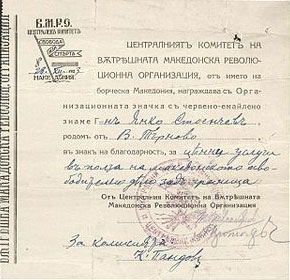 В.М.Р.О.
ЦЕНТРАЛЕНЪ КОМИТЕТЪ
СВОБОДА
СМЪРТЬ
МАКЕДОНИЯ
ЦЕНТРАЛНИЯТЪ КОМИТЕТЪ НА
ВѪТРѢШНАТА МАКЕДОНСКА РЕВОЛЮ-
ЦИОННА ОРГАНИЗАЦИЯ, ОТЪ ИМЕТО НА
БОРЧЕСКА МАКЕДОНИЯ, НАГРАЖДАВА СЪ ОРГА-
НИЗАЦИОННАТА ЗНАЧКА СЪ ЧЕРВЕНО-ЕМАЙЛЕНО
ЗНАМЕ Г-нъ Янко Стоенчевъ
РОДОМЪ ОТЪ В. Търново
ВЪ ЗНАКЪ НА БЛАГОДАРНОСТЬ, ЗА ценни услуги
въ полза на македонското осво-
бодително дѣло задъ граница
ОТЪ ЦЕНТРАЛНИЯ КОМИТЕТЪ НА ВѪТРѢШНАТА
МАКЕДОНСКА РЕВОЛЮЦИОННА ОРГАНИЗАЦИЯ
За комисията
К. Пандовъ